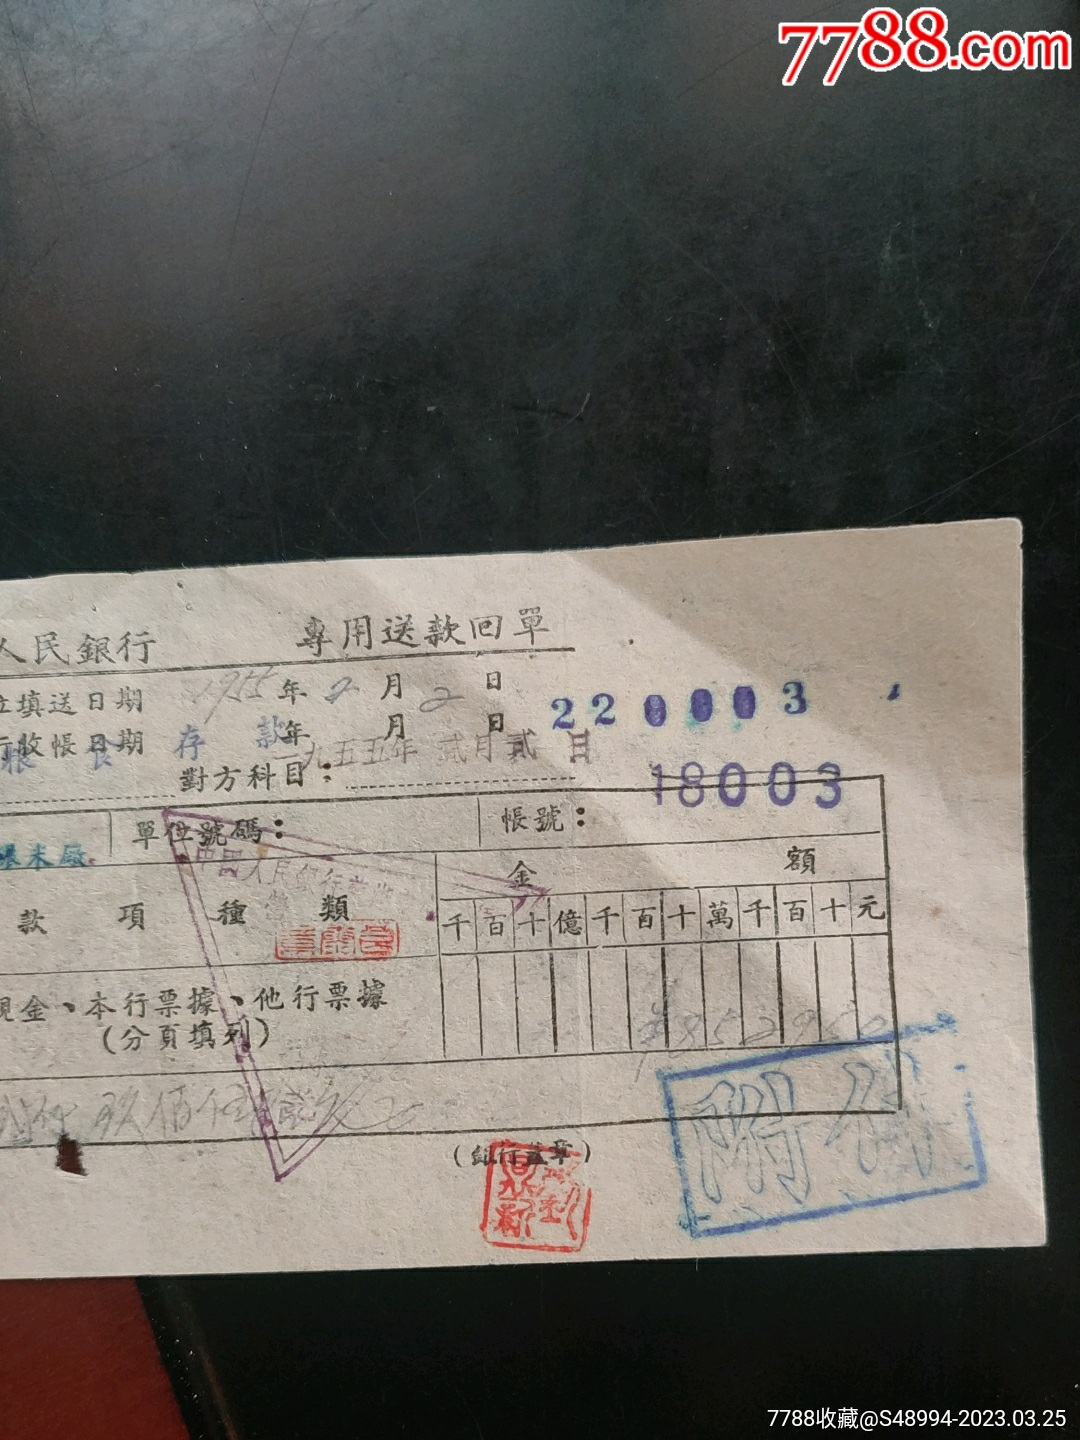 7788.com
人民銀行 專用送款回單
填送日期 1955年2月2日
220003
收帳日期 年 月 日
存 款
一九五五年 貳月貳日
對方科目：
18003
單位號碼： 帳號：
金 額
款 項 種 類
千百十億千百十萬千百十元
現金、本行票據、他行票據
(分頁填列)
玖佰伍
附件
(銀行蓋章)
7788收藏@S48994-2023.03.25